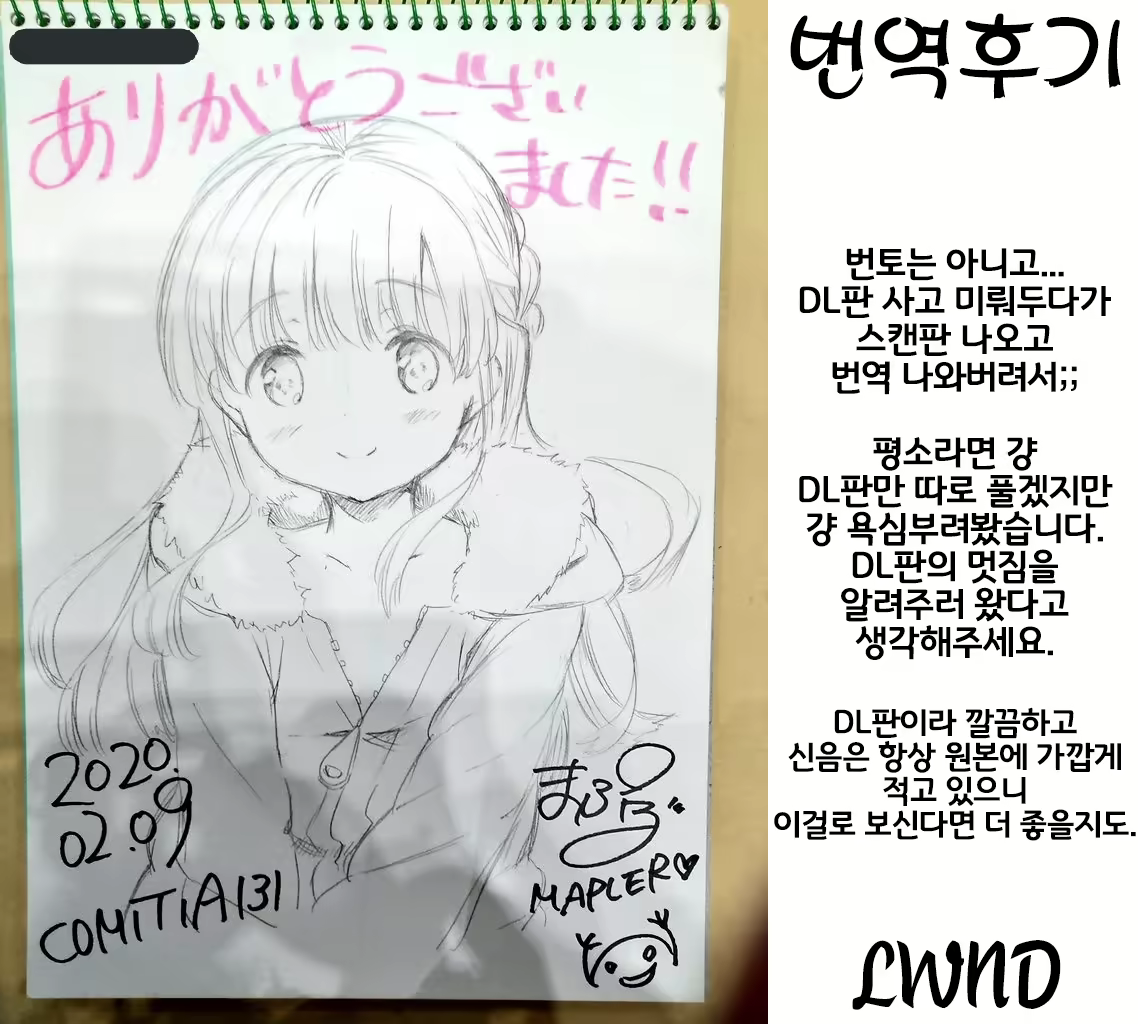 ありがとうござい
ました!!
2020.
02.09
COMITIA131
まぷる
MAPLER♡
번역후기
번토는 아니고...
DL판 사고 미뤄두다가
스캔판 나오고
번역 나와버려서;;
평소라면 걍
DL판만 따로 풀겠지만
걍 욕심부려봤습니다.
DL판의 멋짐을
알려주러 왔다고
생각해주세요.
DL판이라 깔끔하고
신음은 항상 원본에 가깝게
적고 있으니
이걸로 보신다면 더 좋을지도.
LWND